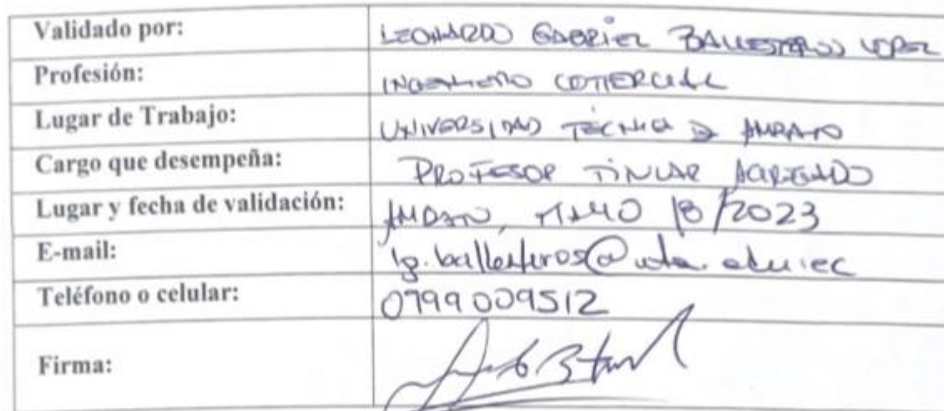 Validado por: LEONARDO GABRIEL BALLESTEROS LOPEZ
Profesión: INGENIERO COMERCIAL
Lugar de Trabajo: UNIVERSIDAD TÉCNICA D AMBATO
Cargo que desempeña: PROFESOR TITULAR AGREGADO
Lugar y fecha de validación: AMBATO, MAYO 18/2023
E-mail: lg.ballesteros@uta.edu.ec
Teléfono o celular: 0799009512
Firma: